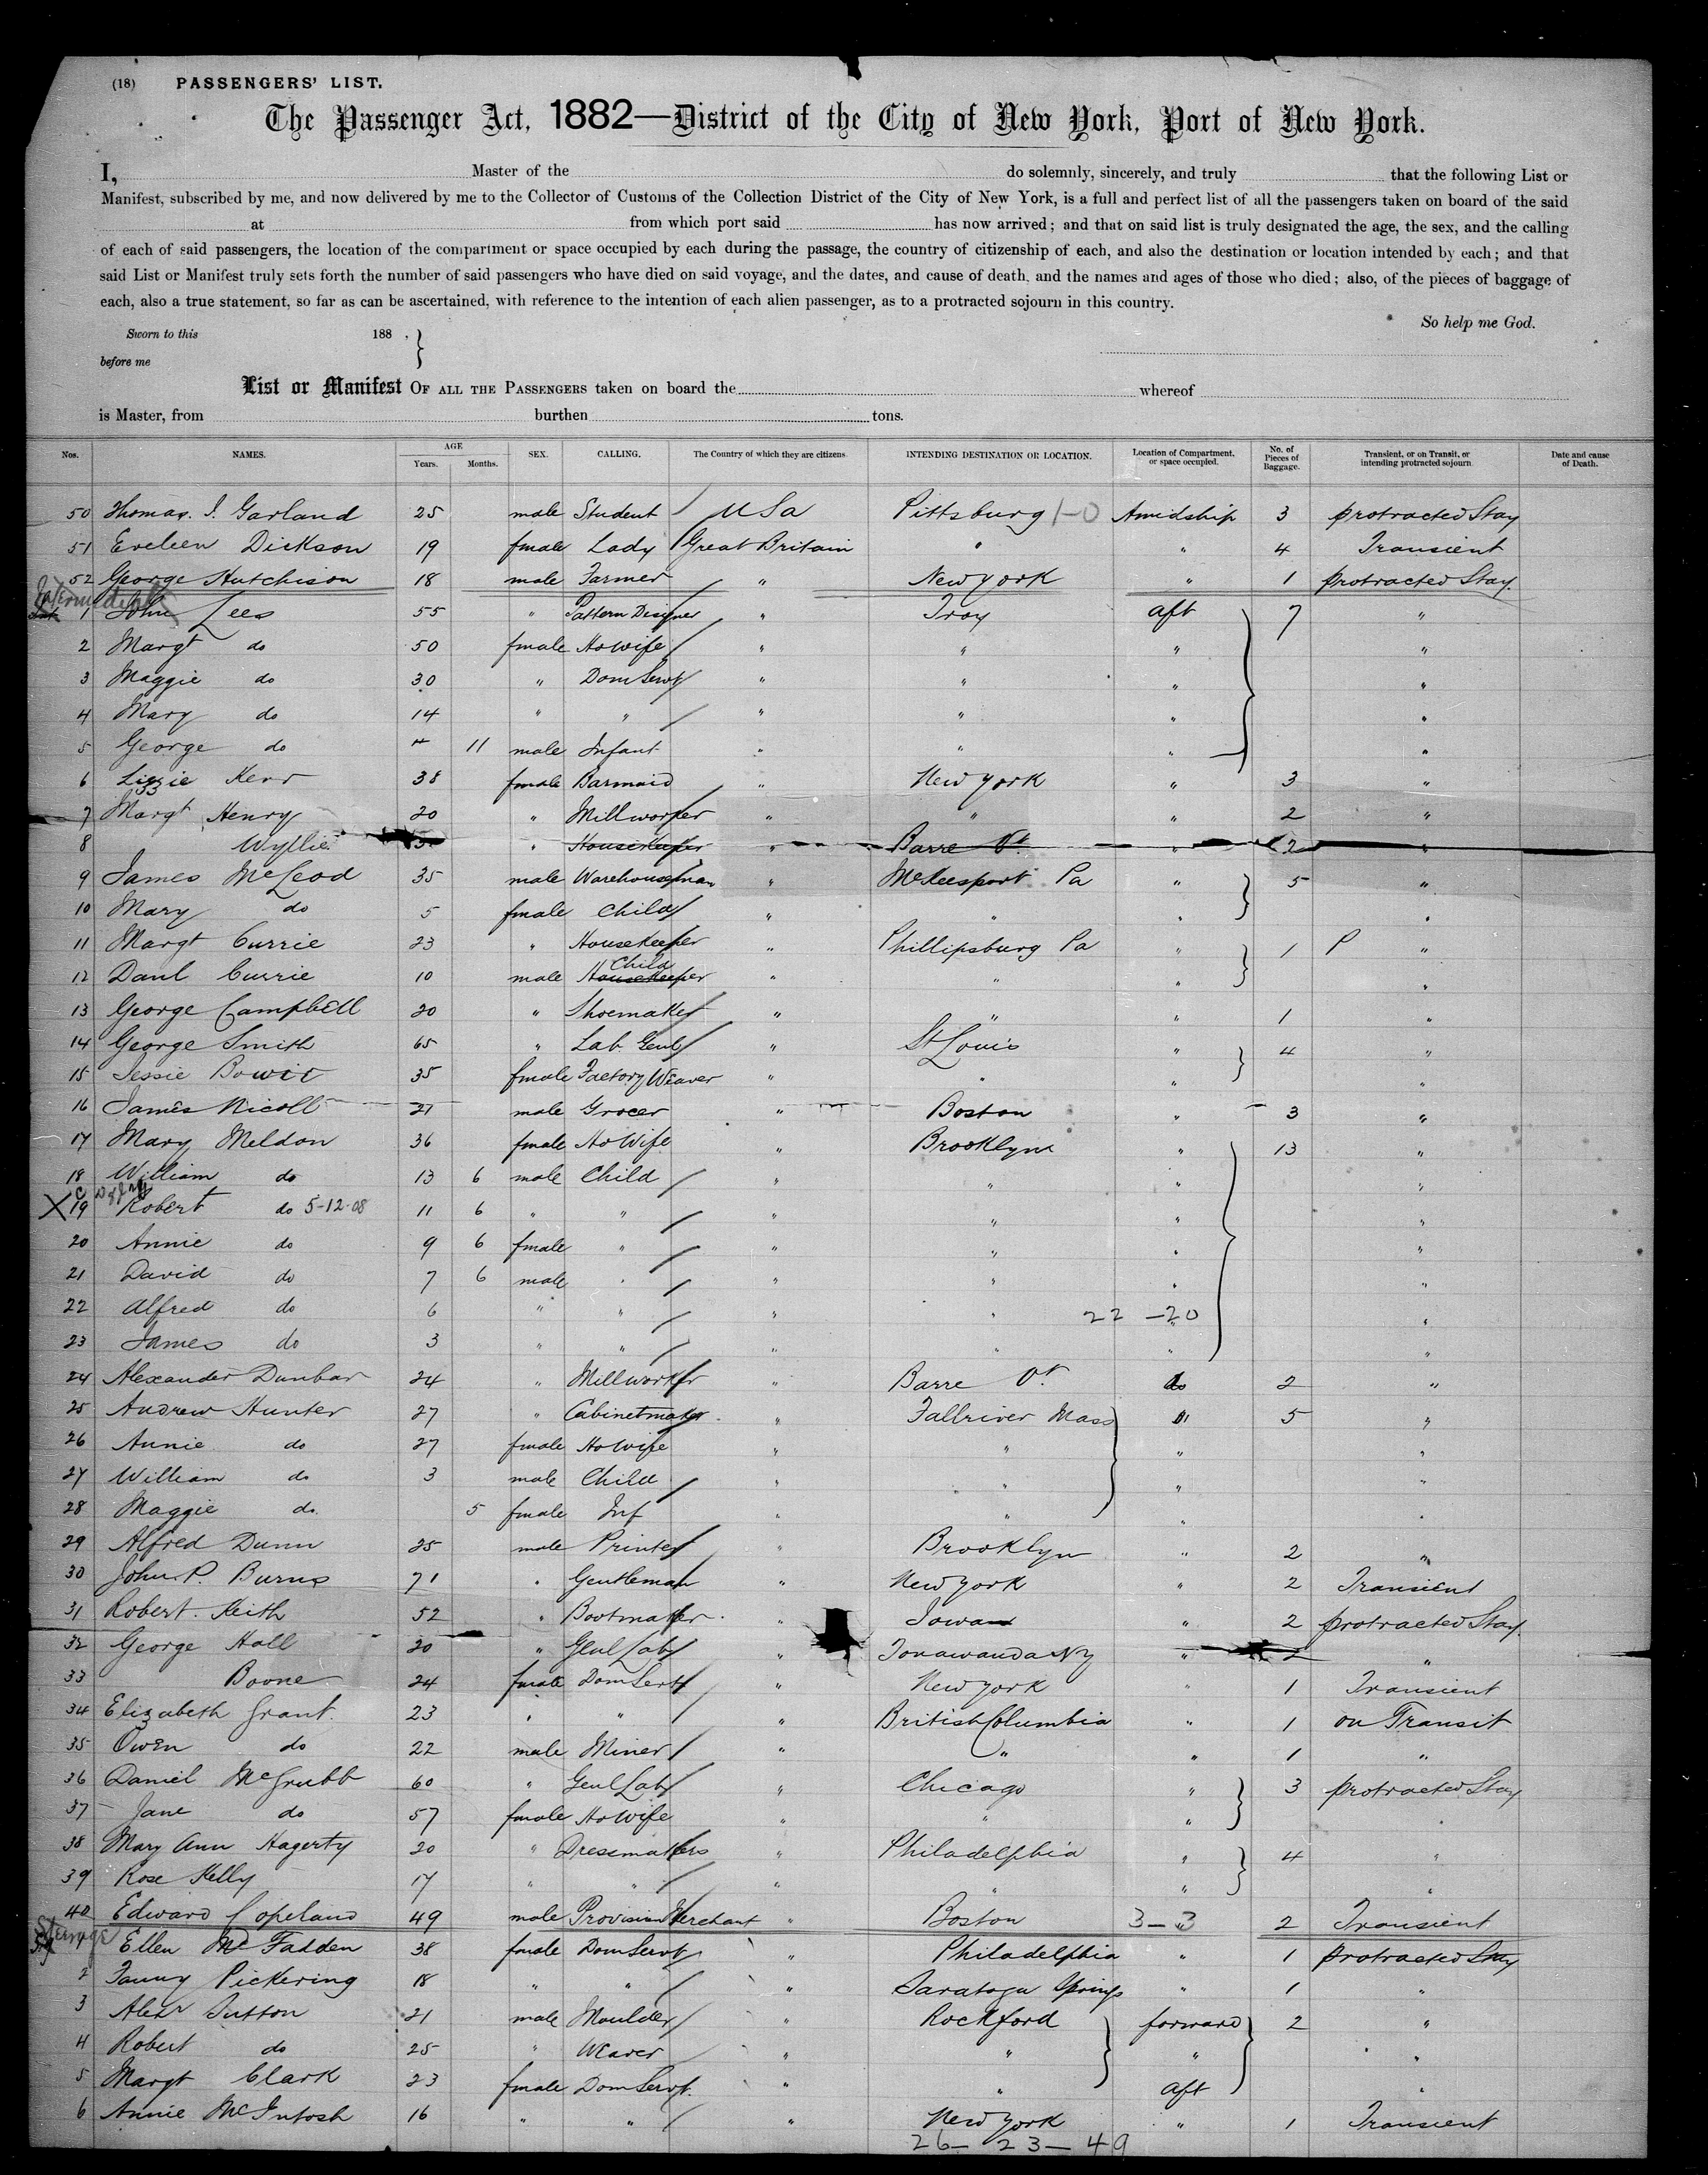 (18) PASSENGERS' LIST.
The Passenger Act, 1882—District of the City of New York, Port of New York.
I, Master of the do solemnly, sincerely, and truly that the following List or
Manifest, subscribed by me, and now delivered by me to the Collector of Customs of the Collection District of the City of New York, is a full and perfect list of all the passengers taken on board of the said
at from which port said has now arrived; and that on said list is truly designated the age, the sex, and the calling
of each of said passengers, the location of the compartment or space occupied by each during the passage, the country of citizenship of each, and also the destination or location intended by each; and that
said List or Manifest truly sets forth the number of said passengers who have died on said voyage, and the dates, and cause of death, and the names and ages of those who died; also, of the pieces of baggage of
each, also a true statement, so far as can be ascertained, with reference to the intention of each alien passenger, as to a protracted sojourn in this country.
So help me God.
Sworn to this 188 . }
before me
List or Manifest OF ALL THE PASSENGERS taken on board the whereof
is Master, from burthen tons.
Nos. NAMES. AGE Years. Months. SEX. CALLING. The Country of which they are citizens. INTENDING DESTINATION OR LOCATION. Location of Compartment, or space occupied. No. of Pieces of Baggage. Transient, or on Transit, or intending protracted sojourn. Date and cause of Death.
50 Thomas. I. Garland 25 male Student / USa Pittsburg 1-0 Amidship 3 protracted Stay
51 Eveleen Dickson 19 fmale Lady / Great Britain " " 4 Transient
52 George Hutchison 18 male Farmer " New York " 1 protracted Stay.
Intermediate
1 John Lees 55 " Pattern Designer " Troy aft 7 "
2 Margt do 50 fmale HoWife " " " "
3 Maggie do 30 " Dom Servt " " " "
4 Mary do 14 " " " " " "
5 George do 11 male Infant " " " "
6 Lizzie Kerr 38 fmale Barmaid " New York " 3 "
7 Margt Henry 20 " Millworker " " " 2 "
8 Wyllie " Housekeeper " Barre Vt " 2 "
9 James McLeod 35 male Warehouseman " McKeesport Pa " 5 "
10 Mary do 5 fmale Child " " " "
11 Margt Currie 23 " HouseKeeper " Phillipsburg Pa " 1 P "
12 Danl Currie 10 male HouseKeeper Child " " " "
13 George Campbell 20 " Shoemaker " " " 1 "
14 George Smith 65 " Lab Genl " St Louis " 4 "
15 Jessie Bowie 35 fmale Factory Weaver " " " "
16 James Nicoll 21 male Grocer " Boston " 3 "
17 Mary Meldon 36 fmale HoWife " Brooklyn " 13 "
18 William do 13 6 male Child " " " "
X 19 Robert do 5-12-08 11 6 " " " " " "
20 Annie do 9 6 fmale " " " " "
21 David do 7 6 male " " " " "
22 Alfred do 6 " " " " 22 -20 "
23 James do 3 " " " " " "
24 Alexander Dunbar 24 " Millworker " Barre Vt do 2 "
25 Andrew Hunter 27 " Cabinetmaker " Fallriver Mass " 5 "
26 Annie do 27 fmale HoWife " " " "
27 William do 3 male Child " " " "
28 Maggie do 5 fmale Inf " " " "
29 Alfred Dunn 25 male Printer " Brooklyn " 2 "
30 John P. Burns 71 " Gentleman " New York " 2 Transient
31 Robert Keith 52 " Bootmaker " Iowa " 2 protracted Stay
32 George Hall 20 " Genl Lab " Tonawanda NY " 2 "
33 Boone 24 fmale Dom Servt " New York " 1 Transient
34 Elizabeth Grant 23 " " " British Columbia " 1 on Transit
35 Owen do 22 male Miner " " " 1 "
36 Daniel McGrubb 60 " Genl Lab " Chicago " 3 protracted Stay
37 Jane do 57 fmale HoWife " " " "
38 Mary Ann Hagerty 20 " Dressmakers " Philadelphia " 4 "
39 Rose Kelly 17 " " " " " "
40 Edward Copeland 49 male Provision Merchant " Boston 3-3 2 Transient
Steerage
1 Ellen McFadden 38 fmale Dom Servt " Philadelphia " 1 protracted Stay
2 Fanny Pickering 18 " " " Saratoga Springs " 1 "
3 Alexr Sutton 21 male Moulder " Rockford forward 2 "
4 Robert do 25 " Weaver " " " "
5 Margt Clark 23 fmale Dom Servt. " " aft "
6 Annie McIntosh 16 " " " New York " 1 Transient
26- 23- 49